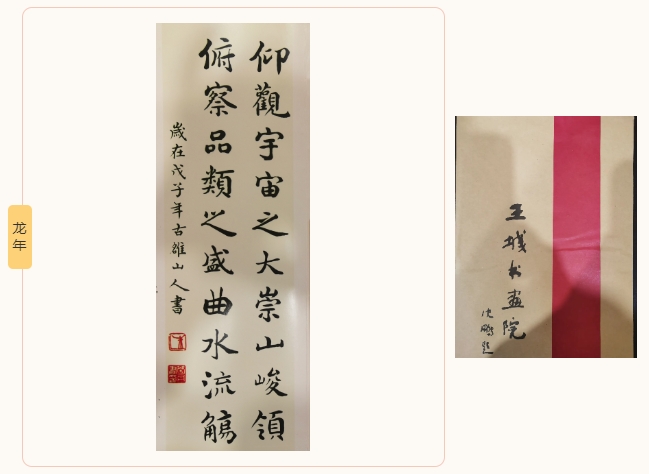 龙年
仰觀宇宙之大崇山峻領
俯察品類之盛曲水流觴
歲在戊子年古雒山人書
王城书畫院
沈鹏题